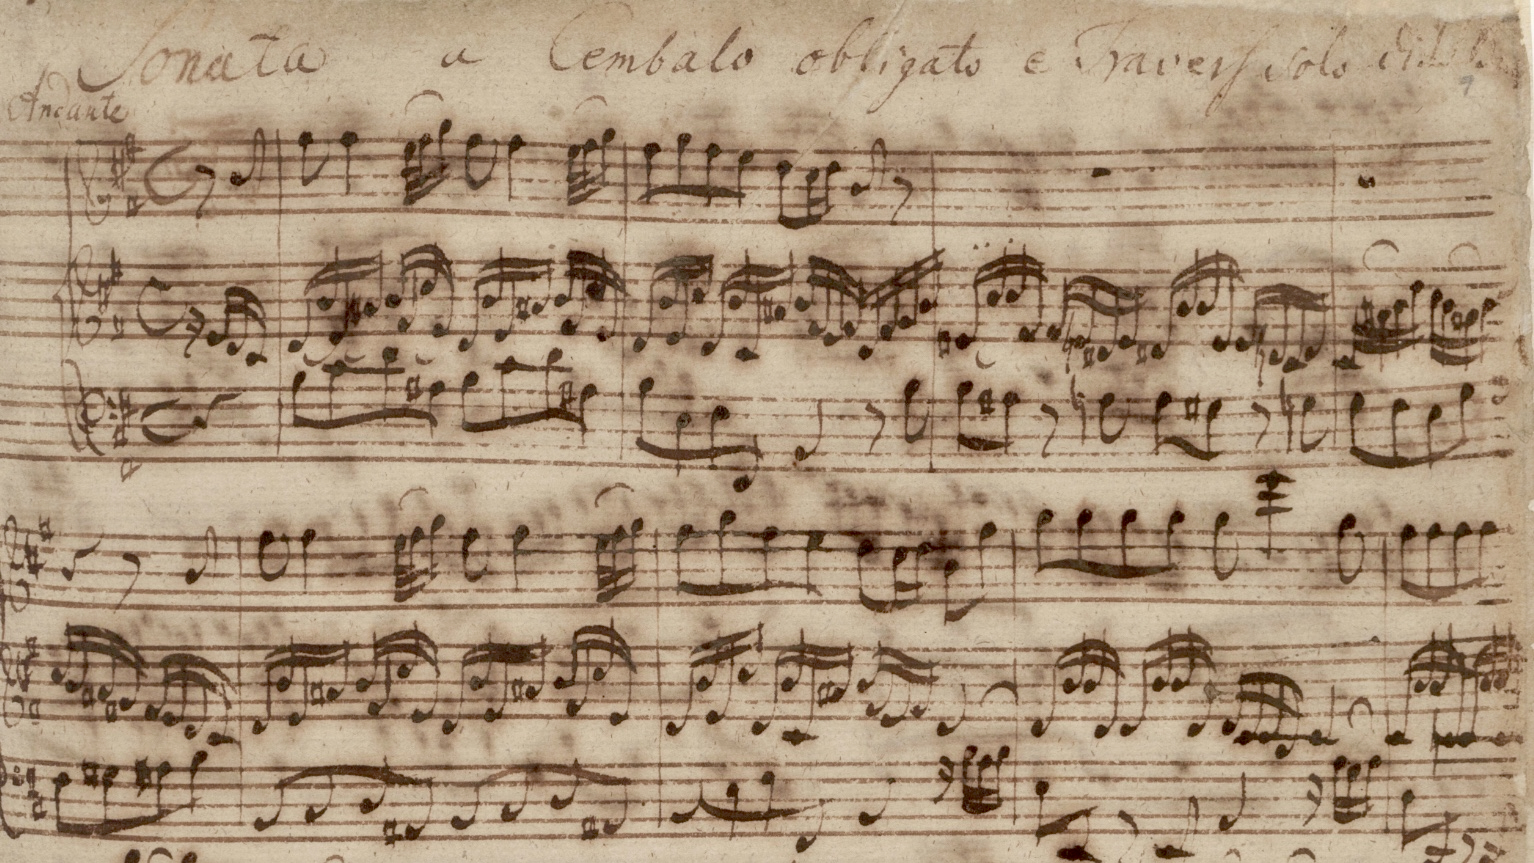 Sonata a Cembalo obligato e Travers solo
Andante